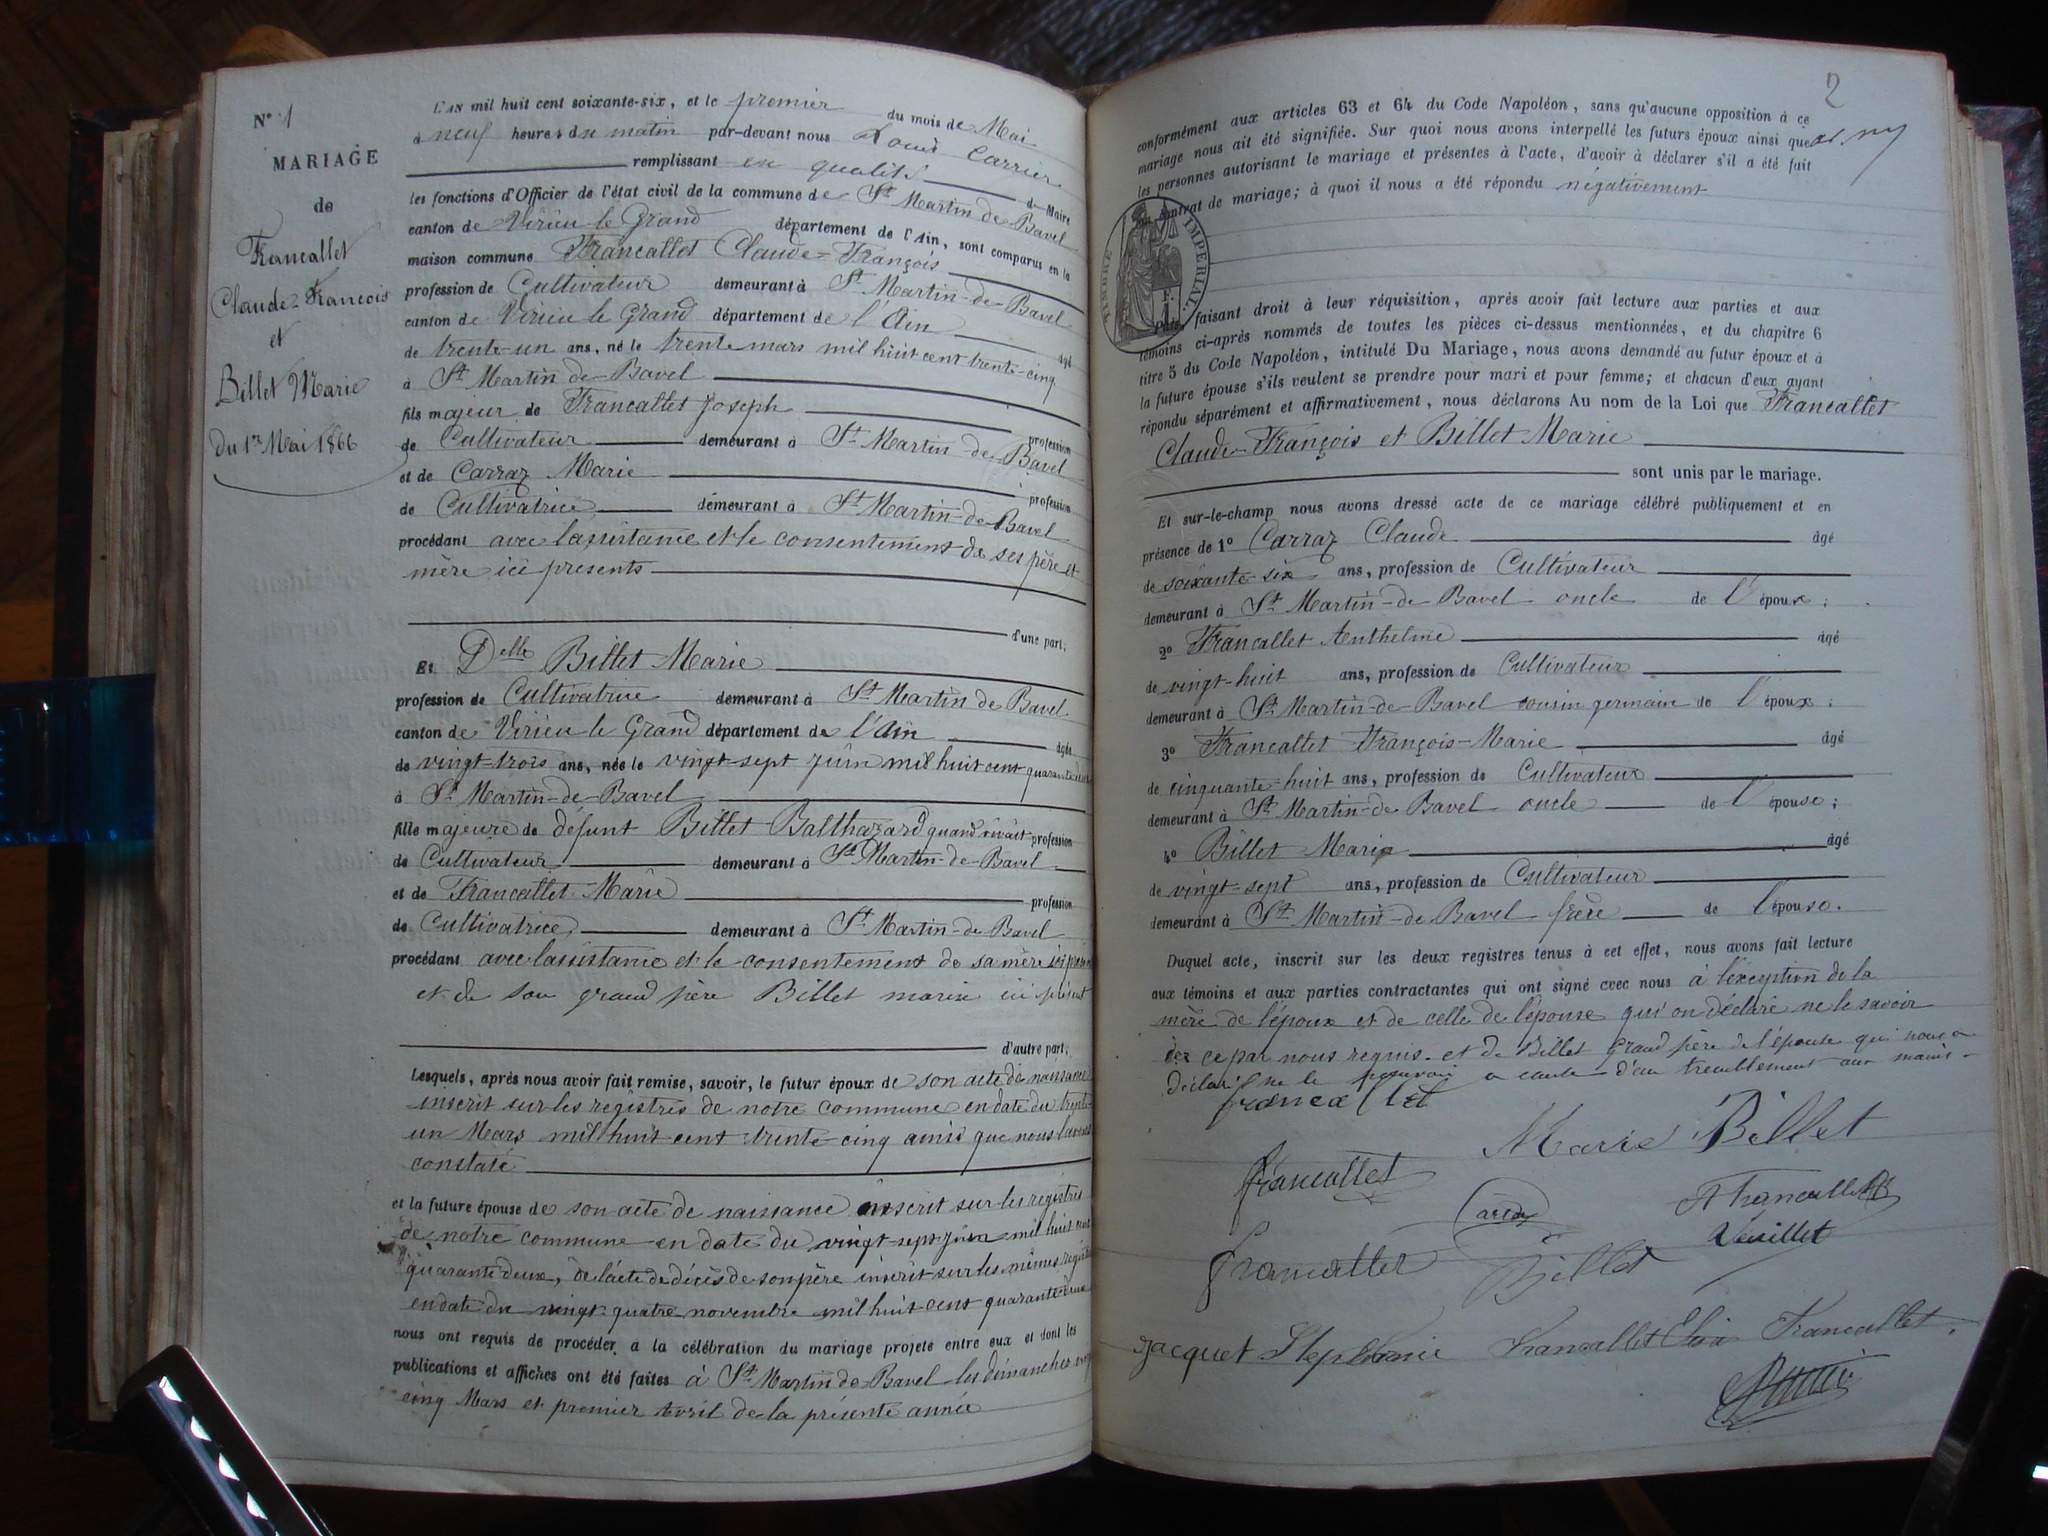 N° 1
MARIAGE
de
Francallet
Claude-François
et
Billet Marie
du 1er Mai 1866
L'AN mil huit cent soixante-six, et le premier du mois de Mai
à neuf heures du matin par-devant nous Louis Carrier
remplissant en qualité de Maire
les fonctions d'Officier de l'état civil de la commune de St Martin de Bavel
canton de Virieu le Grand département de l'Ain, sont comparus en la
maison commune Francallet Claude-François
profession de Cultivateur demeurant à St Martin-de-Bavel
canton de Virieu le Grand département de l'Ain âgé
de trente-un ans, né le trente mars mil huit cent trente-cinq
à St Martin de Bavel
fils majeur de Francallet Joseph profession
de Cultivateur demeurant à St Martin-de-Bavel
et de Carraz Marie profession
de Cultivatrice demeurant à St Martin-de-Bavel
procédant avec l'assistance et le consentement de ses père et
mère ici présents
d'une part;
Et Delle Billet Marie
profession de Cultivatrice demeurant à St Martin de Bavel
canton de Virieu le Grand département de l'Ain âgée
de vingt-trois ans, née le vingt-sept juin mil huit cent quarante deux
à St Martin-de-Bavel
fille majeure de défunt Billet Balthazard quand vivait profession
de Cultivateur demeurant à St Martin-de-Bavel
et de Francallet Marie profession
de Cultivatrice demeurant à St Martin-de-Bavel
procédant avec l'assistance et le consentement de sa mère ici
et de son grand père Billet marin ici présent
d'autre part;
Lesquels, après nous avoir fait remise, savoir, le futur époux de son acte de naissance
inscrit sur les registres de notre commune en date du trente-
un Mars mil huit cent trente-cinq ainsi que nous l'avons
constaté
et la future épouse de son acte de naissance inscrit sur les registres
de notre commune en date du vingt-sept juin mil huit cent
quarante deux, de l'acte de décès de son père inscrit sur les mêmes
en date du vingt-quatre novembre mil huit cent
nous ont requis de procéder à la célébration du mariage projeté entre eux et dont les
publications et affiches ont été faites à St Martin de Bavel les dimanches vingt
cinq Mars et premier Avril de la présente année
2
conformément aux articles 63 et 64 du Code Napoléon, sans qu'aucune opposition à ce
mariage nous ait été signifiée. Sur quoi nous avons interpellé les futurs époux ainsi que
les personnes autorisant le mariage et présentes à l'acte, d'avoir à déclarer s'il a été fait
un contrat de mariage; à quoi il nous a été répondu négativement
TIMBRE IMPERIAL.
Puis, faisant droit à leur réquisition, après avoir fait lecture aux parties et aux
témoins ci-après nommés de toutes les pièces ci-dessus mentionnées, et du chapitre 6
titre 5 du Code Napoléon, intitulé Du Mariage, nous avons demandé au futur époux et à
la future épouse s'ils veulent se prendre pour mari et pour femme; et chacun d'eux ayant
répondu séparément et affirmativement, nous déclarons Au nom de la Loi que Francallet
Claude-François et Billet Marie
sont unis par le mariage.
Et sur-le-champ nous avons dressé acte de ce mariage célébré publiquement et en
présence de 1° Carraz Claude âgé
de soixante-six ans, profession de Cultivateur
demeurant à St Martin-de-Bavel oncle de l'époux;
2° Francallet Anthelme âgé
de vingt-huit ans, profession de Cultivateur
demeurant à St Martin-de-Bavel cousin germain de l'époux;
3° Francallet François-Marie âgé
de cinquante-huit ans, profession de Cultivateur
demeurant à St Martin-de Bavel oncle de l'épouse;
4° Billet Marin âgé
de vingt-sept ans, profession de Cultivateur
demeurant à St Martin-de-Bavel frère de l'épouse.
Duquel acte, inscrit sur les deux registres tenus à cet effet, nous avons fait lecture
aux témoins et aux parties contractantes qui ont signé avec nous à l'exception de la
mère de l'époux et de celle de l'épouse qui on déclaré ne le savoir
de ce par nous requis. et de Billet grand père de l'épouse qui nous a
déclaré ne le pouvoir a cause d'un tremblement aux mains
francallet
Marie Billet
francallet
Carraz
A francallet
Veuillet
francallet
Billet
Jacquet Stephanie
francallet
Francallet